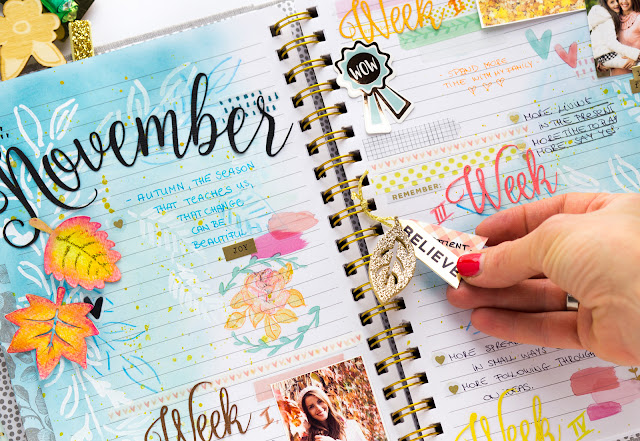 November
- AUTUMN, THE SEASON
THAT TEACHES US,
THAT CHANGE
CAN BE
BEAUTIFUL
JOY
Week I.
Week II
WOW
SPEND MORE
TIME WITH MY FAMILY
- MORE LIVING
IN THE PRESENT
MORE TIME TO PLAY
MORE SAY YES
REMEMBER:
III Week
BELIEVE
- MORE
IN SMALL WAYS
- MORE FOLLOWING THROUGH
ON IDEAS.
IV Week